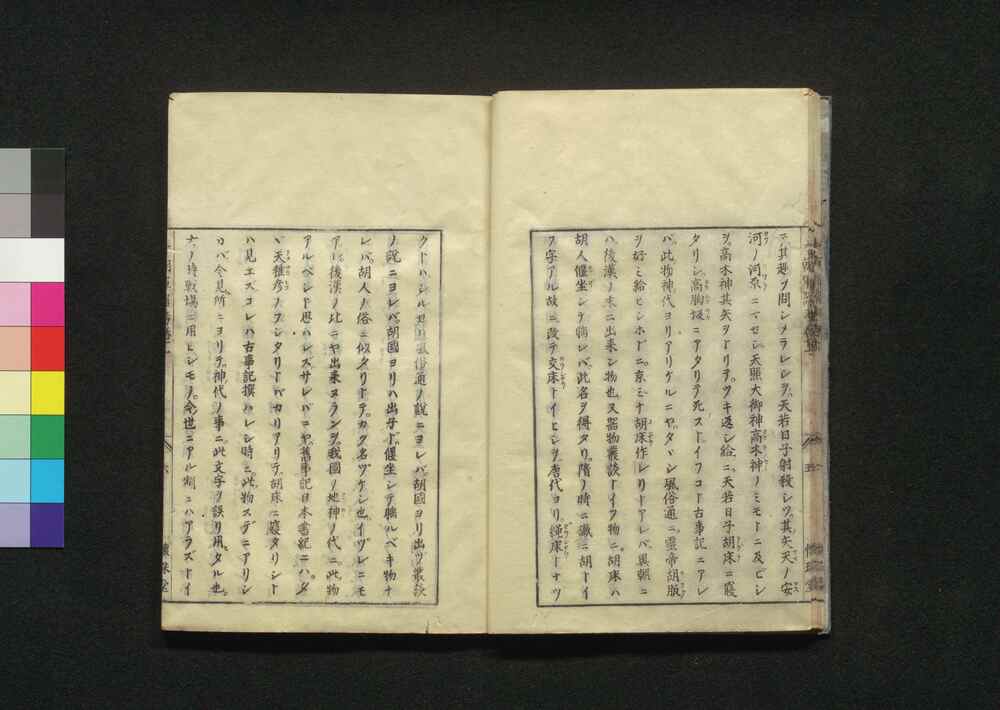 テ其趣ヲ問シメラレシヲ、天若日子射殺シツ、其矢天ノ安
河ノ河原ニマセシ天照大御神高木神ノミモトニ及ビシ
ヲ、高木神其矢ヲトリテツキ返シ給ニ、天若日子胡床ニ寢
タリシ高胸坂ニアタリテ死ストイフコト古事記ニアレ
バ、此物神代ヨリアリケルニヤ、タヾシ風俗通ニ、靈帝胡服
ヲ好ミ給ヒシホドニ、京ミナ胡床作レリトアレバ異朝ニ
ハ、後漢ノ末ニ出来シ物也、又器物叢談トイフ物ニ、胡床ハ
胡人偃坐シテ病シバ此名ヲ得タリ、隋ノ時ニ讖ニ胡トイ
フ字アル故ニ改テ交床トイヒシヲ、唐代ヨリ繩床トナツ
クトハシルセリ、風俗通ノ説ニヨレバ、胡國ヨリ出ツ、叢談
ノ説ニヨレバ、胡國ヨリハ出ネド、偃坐シテ睡ルベキ物ナ
レバ、胡人ノ俗ニ似タリトテ、カク名ヅケシ也、イヅレニモ
アレ後漢ノ比ニヤ出来ヌランヲ、我國ノ地神ノ代ニ此物
アルベシトモ思ハレズ、サレバニヤ、舊事記日本書紀ニハ、タ
ヾ天稚彦ノフシタリトバカリアリテ、胡床ニ寢タリシト
ハ見エズ、コレハ古事記撰ハレシ時ニ、此物スデニアリシ
カバ、今見所ニヨリテ、神代ノ事ニ此文字ヲ誤リ用タル也、
ノ時戰場ニ用ヒシモノ、今世ニアル制ニハアラズトイ